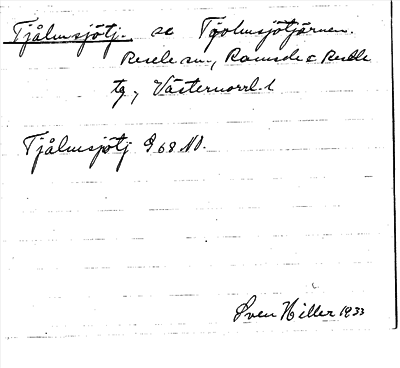 Tjålmsjötj. se Tjolmsjötjärnen.
Resele sn., Ramsele o Resele
tg, Västernorrl. l
Tjålmsjötj G 68 NO.
Sven Hiller 1933